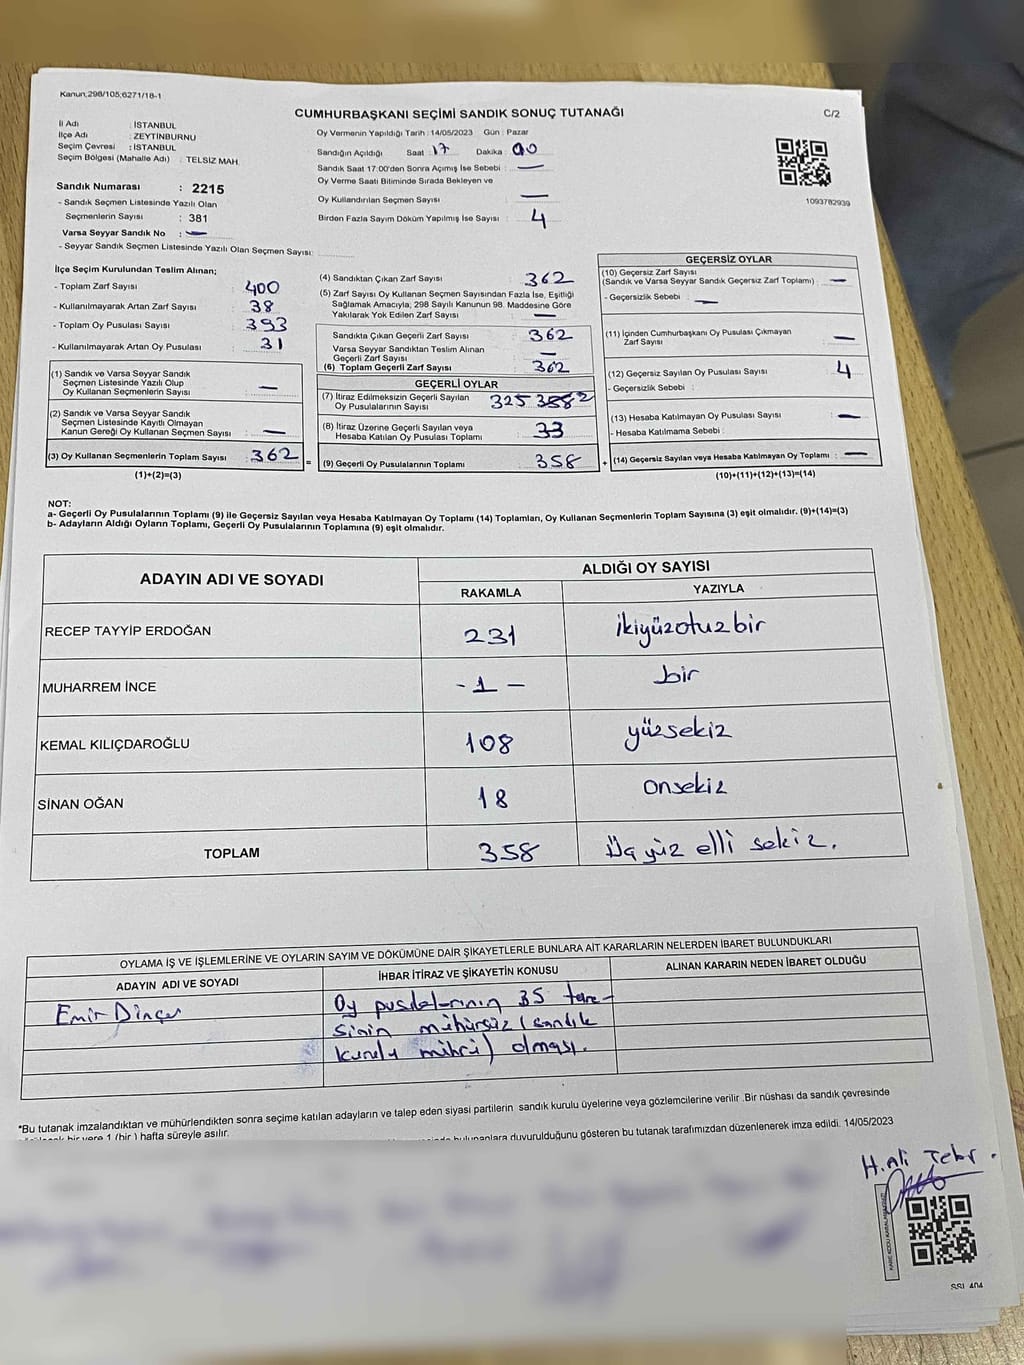 Kanun;298/105;6271/18-1
CUMHURBAŞKANI SEÇİMİ SANDIK SONUÇ TUTANAĞI
C/2
İl Adı : İSTANBUL
İlçe Adı : ZEYTİNBURNU
Seçim Çevresi : İSTANBUL
Seçim Bölgesi (Mahalle Adı) : TELSİZ MAH.
Oy Vermenin Yapıldığı Tarih : 14/05/2023 Gün : Pazar
Sandığın Açıldığı Saat : 17 Dakika : 00
Sandık Saat 17:00'den Sonra Açımış İse Sebebi : —
Oy Verme Saati Bitiminde Sırada Bekleyen ve
Oy Kullandırılan Seçmen Sayısı : —
Birden Fazla Sayım Döküm Yapılmış İse Sayısı : 4
1093782939
Sandık Numarası : 2215
- Sandık Seçmen Listesinde Yazılı Olan
Seçmenlerin Sayısı : 381
Varsa Seyyar Sandık No : —
- Seyyar Sandık Seçmen Listesinde Yazılı Olan Seçmen Sayısı:
İlçe Seçim Kurulundan Teslim Alınan;
- Toplam Zarf Sayısı : 400
- Kullanılmayarak Artan Zarf Sayısı : 38
- Toplam Oy Pusulası Sayısı : 393
- Kullanılmayarak Artan Oy Pusulası : 31
(1) Sandık ve Varsa Seyyar Sandık
Seçmen Listesinde Yazılı Olup
Oy Kullanan Seçmenlerin Sayısı : —
(2) Sandık ve Varsa Seyyar Sandık
Seçmen Listesinde Kayıtlı Olmayan
Kanun Gereği Oy Kullanan Seçmen Sayısı : —
(3) Oy Kullanan Seçmenlerin Toplam Sayısı : 362
(1)+(2)=(3)
(4) Sandıktan Çıkan Zarf Sayısı : 362
(5) Zarf Sayısı Oy Kullanan Seçmen Sayısından Fazla İse, Eşitliği
Sağlamak Amacıyla, 298 Sayılı Kanunun 98. Maddesine Göre
Yakılarak Yok Edilen Zarf Sayısı : —
Sandıkta Çıkan Geçerli Zarf Sayısı : 362
Varsa Seyyar Sandıktan Teslim Alınan
Geçerli Zarf Sayısı : —
(6) Toplam Geçerli Zarf Sayısı : 362
GEÇERLİ OYLAR
(7) İtiraz Edilmeksizin Geçerli Sayılan
Oy Pusulalarının Sayısı : 325
(8) İtiraz Üzerine Geçerli Sayılan veya
Hesaba Katılan Oy Pusulası Toplamı : 33
= (9) Geçerli Oy Pusulalarının Toplamı : 358
GEÇERSİZ OYLAR
(10) Geçersiz Zarf Sayısı
(Sandık ve Varsa Seyyar Sandık Geçersiz Zarf Toplamı) : —
- Geçersizlik Sebebi : —
(11) İçinden Cumhurbaşkanı Oy Pusulası Çıkmayan
Zarf Sayısı : —
(12) Geçersiz Sayılan Oy Pusulası Sayısı : 4
- Geçersizlik Sebebi :
(13) Hesaba Katılmayan Oy Pusulası Sayısı : —
- Hesaba Katılmama Sebebi :
+ (14) Geçersiz Sayılan veya Hesaba Katılmayan Oy Toplamı : —
(10)+(11)+(12)+(13)=(14)
NOT:
a- Geçerli Oy Pusulalarının Toplamı (9) ile Geçersiz Sayılan veya Hesaba Katılmayan Oy Toplamı (14) Toplamları, Oy Kullanan Seçmenlerin Toplam Sayısına (3) eşit olmalıdır. (9)+(14)=(3)
b- Adayların Aldığı Oyların Toplamı, Geçerli Oy Pusulalarının Toplamına (9) eşit olmalıdır.
ADAYIN ADI VE SOYADI
ALDIĞI OY SAYISI
RAKAMLA YAZIYLA
RECEP TAYYİP ERDOĞAN 231 ikiyüzotuzbir
MUHARREM İNCE -1- bir
KEMAL KILIÇDAROĞLU 108 yüzsekiz
SİNAN OĞAN 18 onsekiz
TOPLAM 358 Üç yüz elli sekiz.
OYLAMA İŞ VE İŞLEMLERİNE VE OYLARIN SAYIM VE DÖKÜMÜNE DAİR ŞİKAYETLERLE BUNLARA AİT KARARLARIN NELERDEN İBARET BULUNDUKLARI
ADAYIN ADI VE SOYADI İHBAR İTİRAZ VE ŞİKAYETİN KONUSU ALINAN KARARIN NEDEN İBARET OLDUĞU
Emir Dinçer Oy pusulalarının 35 tane-
sinin mühürsüz (sandık
kurulu mührü) olması.
*Bu tutanak imzalandıktan ve mühürlendikten sonra seçime katılan adayların ve talep eden siyasi partilerin sandık kurulu üyelerine veya gözlemcilerine verilir .Bir nüshası da sandık çevresinde
bir yere 1 (bir ) hafta süreyle asılır.
bulunanlara duyurulduğunu gösteren bu tutanak tarafımızdan düzenlenerek imza edildi. 14/05/2023
H.Ali